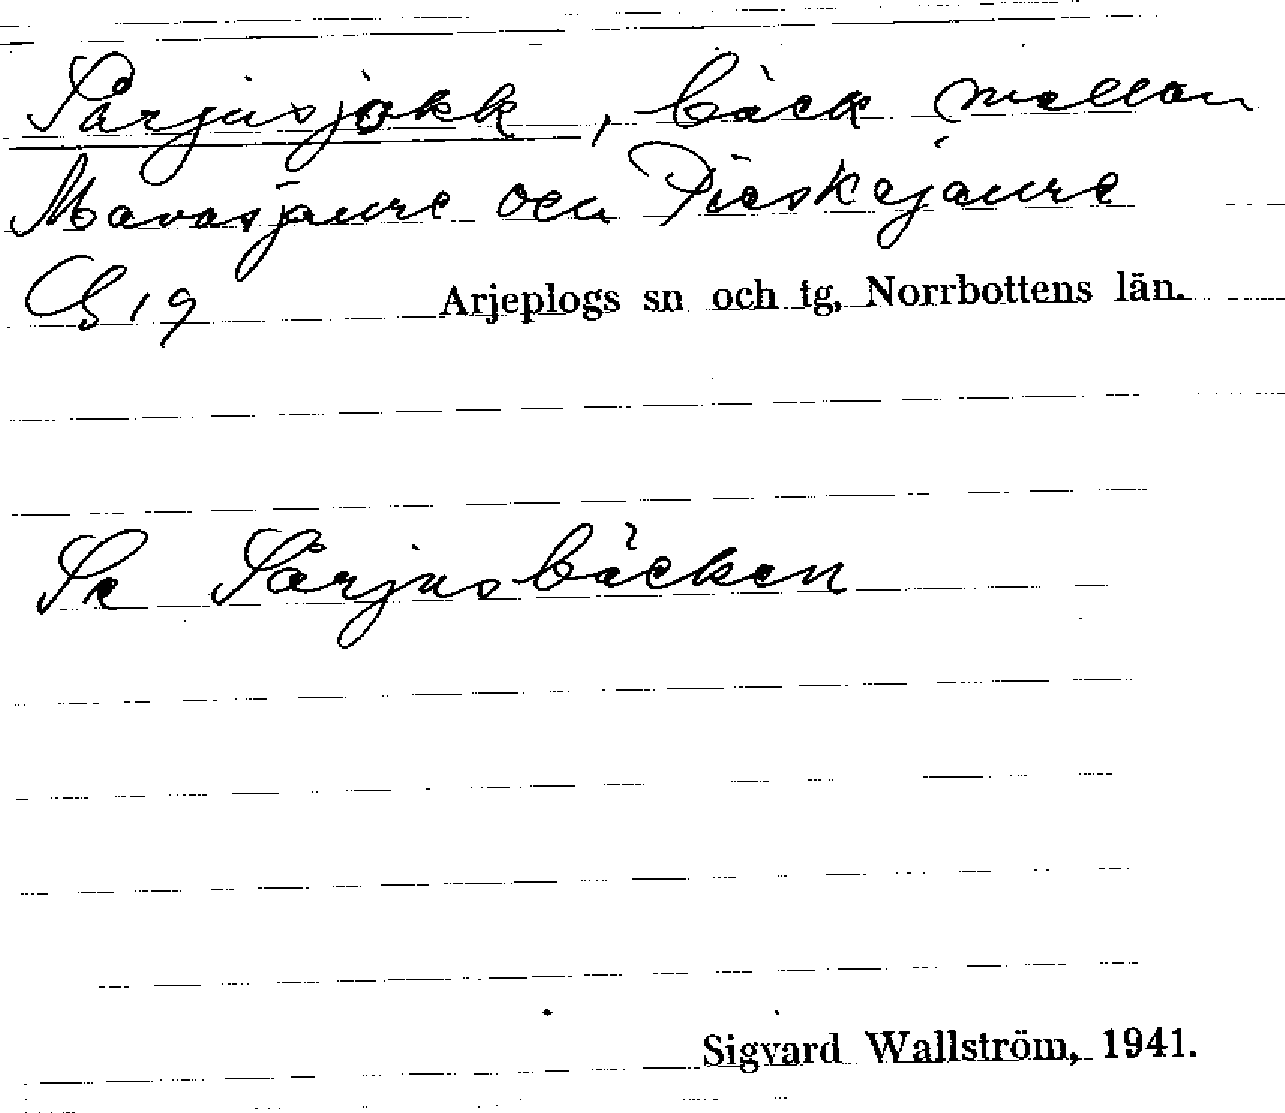 Sårjusjåkk, bäck mellan
Mavasjaure och Pieskejaure
G 19 Arjeplogs sn och tg, Norrbottens län.
Se Sårjusbäcken
Sigvard Wallström, 1941.